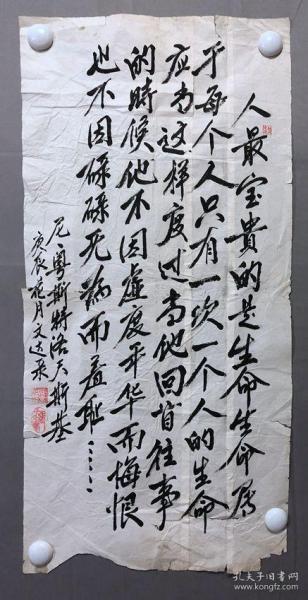 人最宝贵的是生命生命属
于每个人只有一次一个人的生命
应当这样度过当他回首往事
的時候他不因虚度年华而悔恨
也不因碌碌无为而羞耻……
尼·奥斯特洛夫斯基
庚辰 月文达录
孔夫子旧书网
www.kongfz.com